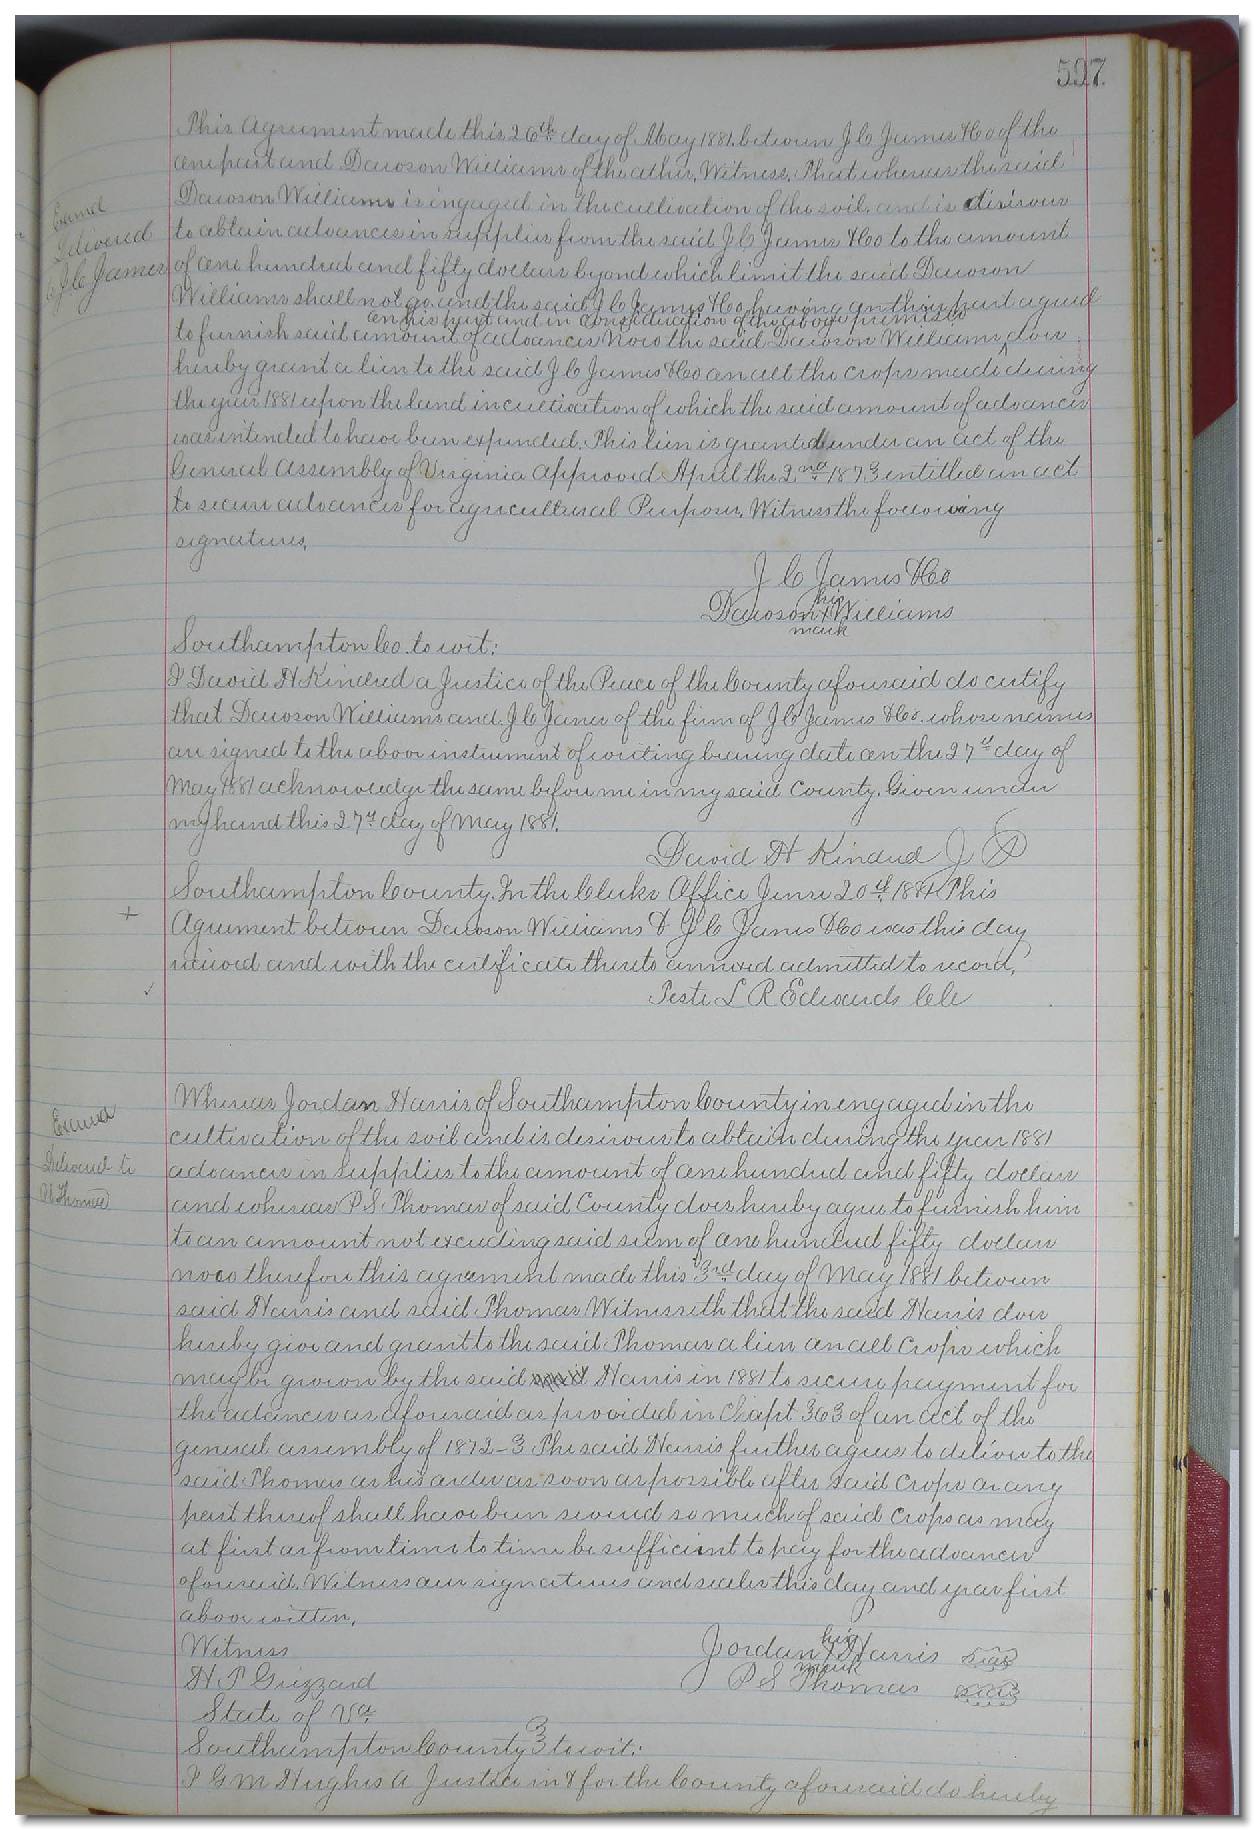 597.
This Agreement made this 26th day of May 1881. between J C James & Co of the
one part and Dawson Williams of the other, Witness, That whereas the said
Dawson Williams is engaged in the cultivation of the soil. and is desirous
to obtain advances in supplies from the said J C James & Co to the amount
of one hundred and fifty dollars beyond which limit the said Dawson
Williams shall not go and the said J C James & Co having on their part agreed
on his part and in consideration of the above premises
to furnish said amount of advances Now the said Dawson Williams, does
hereby grant a lien to the said J C James & Co on all the crops made during
the year 1881 upon the land in cultivation of which the said amount of advances
was intended to have been expended. This lien is granted under an act of the
General Assembly of Virginia Approved April the 2nd 1873 entitled an act
to secure advances for agricultural Purposes. Witness the following
signatures.
Examd
Delivered
J C James
J C James & Co
his
Dawson X Williams
mark
Southampton Co. to wit:
I David H Kindred a Justice of the Peace of the County aforesaid do certify
that Dawson Williams and J C James of the firm of J C James & Co. whose names
are signed to the above instrument of writing bearing date on the 27th day of
May 1881 acknowledge the same before me in my said County. Given under
my hand this 27th day of May 1881.
David H Kindred J P
Southampton County. In the Clerks Office June 20th 1881. This
+
Agreement between Dawson Williams & J C James & Co was this day
received and with the certificate thereto annexed admitted to record,
Teste L R Edwards Clk
Whereas Jordan Harris of Southampton County in engaged in the
cultivation of the soil and is desirous to obtain during the year 1881
advances in supplies to the amount of one hundred and fifty dollars
and whereas P S. Thomas of said County does hereby agree to furnish him
to an amount not exceeding said sum of one hundred fifty dollars
now therefore this agreement made this 3rd day of May 1881 between
said Harris and said Thomas Witnesseth that the said Harris does
hereby give and grant to the said Thomas a lien on all crops which
may be grown by the said Harris in 1881 to secure payment for
the advances as aforesaid as provided in Chapt 363 of an act of the
general assembly of 1872-3 The said Harris further agrees to deliver to the
said Thomas or his order as soon as possible after said crops or any
part thereof shall have been severed so much of said crops as may
at first or from time to time be sufficient to pay for the advances
aforesaid. Witness our signatures and seals this day and year first
above written.
Examd
Delivered to
Thomas
Witness
H P Grizzard
his
Jordan X Harris seal
mark
P S Thomas seal
State of Va
Southampton County } to wit:
I G M Hughes a Justice in & for the County aforesaid do hereby